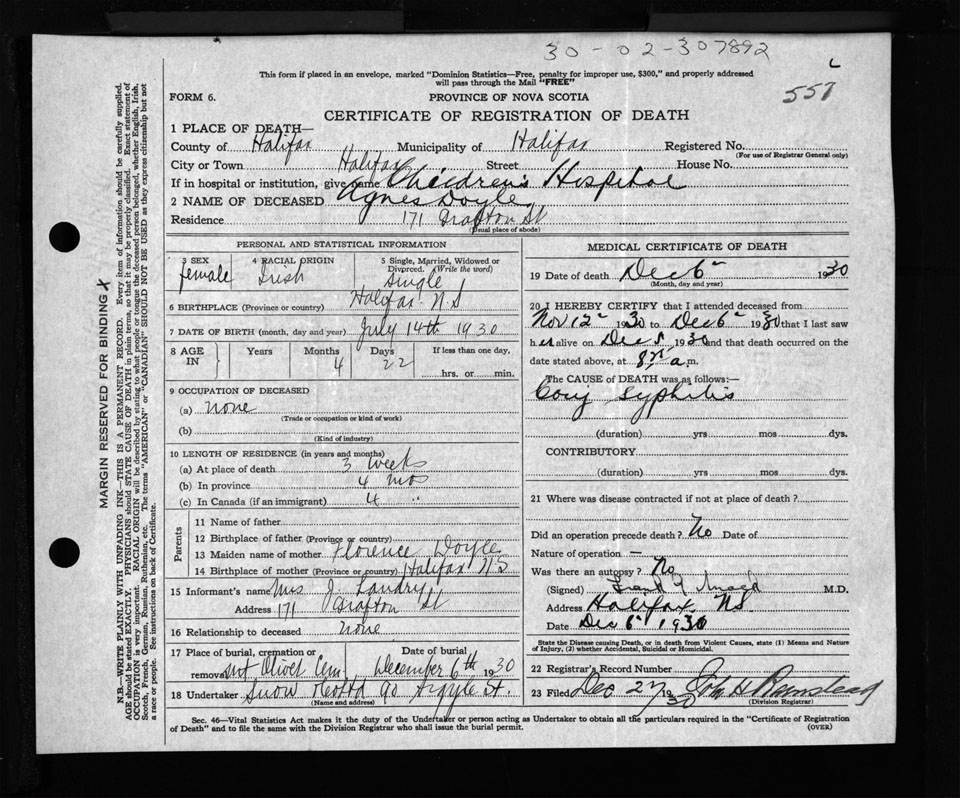 30-02-307892
This form if placed in an envelope, marked "Dominion Statistics—Free, penalty for improper use, $300," and properly addressed
will pass through the Mail "FREE"
557
FORM 6.
PROVINCE OF NOVA SCOTIA
CERTIFICATE OF REGISTRATION OF DEATH
1 PLACE OF DEATH—
County of Halifax Municipality of Halifax Registered No.
(For use of Registrar General only)
City or Town Halifax Street House No.
If in hospital or institution, give name Children's Hospital
2 NAME OF DECEASED Agnes Doyle
Residence 171 Grafton St
(Usual place of abode)
PERSONAL AND STATISTICAL INFORMATION
3 SEX 4 RACIAL ORIGIN 5 Single, Married, Widowed or
Divorced. (Write the word)
female Irish Single
6 BIRTHPLACE (Province or country) Halifax N S
7 DATE OF BIRTH (month, day and year) July 14th 1930
8 AGE IN Years Months Days If less than one day,
4 22 hrs. or min.
9 OCCUPATION OF DECEASED
(a) none
(Trade or occupation or kind of work)
(b)
(Kind of industry)
10 LENGTH OF RESIDENCE (in years and months)
(a) At place of death 3 weeks
(b) In province 4 mos
(c) In Canada (if an immigrant) 4 "
Parents
11 Name of father
12 Birthplace of father (Province or country)
13 Maiden name of mother Florence Doyle
14 Birthplace of mother (Province or country) Halifax N S
15 Informant's name Mrs J. Landry
Address 171 Grafton St
16 Relationship to deceased none
17 Place of burial, cremation or Date of burial
removal Mt Olivet Cem December 6th 1930
18 Undertaker Snow 90 Argyle St.
(Name and address)
MEDICAL CERTIFICATE OF DEATH
19 Date of death Dec 6 1930
(Month, day and year)
20 I HEREBY CERTIFY that I attended deceased from
Nov 12 1930 to Dec 6 1930 that I last saw
h er alive on Dec 5 1930 and that death occurred on the
date stated above, at a.m.
The CAUSE OF DEATH was as follows:—
Cong Syphilis
(duration) yrs mos dys.
CONTRIBUTORY
(duration) yrs mos dys.
21 Where was disease contracted if not at place of death?
Did an operation precede death? No Date of
Nature of operation —
Was there an autopsy? No
(Signed) M.D.
Address Halifax NS
Date Dec 6 1930
State the Disease causing Death, or in death from Violent Causes, state (1) Means and Nature
of Injury, (2) whether Accidental, Suicidal or Homicidal.
22 Registrar's Record Number
23 Filed Dec 27 1930 John H Barnstead
(Division Registrar)
Sec. 46—Vital Statistics Act makes it the duty of the Undertaker or person acting as Undertaker to obtain all the particulars required in the "Certificate of Registration
of Death" and to file the same with the Division Registrar who shall issue the burial permit. (OVER)
MARGIN RESERVED FOR BINDING
N.B.—WRITE PLAINLY WITH UNFADING INK—THIS IS A PERMANENT RECORD. Every item of information should be carefully supplied.
AGE should be stated EXACTLY. PHYSICIANS should STATE CAUSE OF DEATH in plain terms, so that it may be properly classified. Exact statement of
OCCUPATION is very important. RACIAL ORIGIN will be described by stating to what people or tongue the deceased person belonged, whether English, Irish,
Scotch, French, German, Russian, Ruthenian, etc. The terms "AMERICAN" or "CANADIAN" SHOULD NOT BE USED as they express citizenship but not
a race or people. See instructions on back of Certificate.